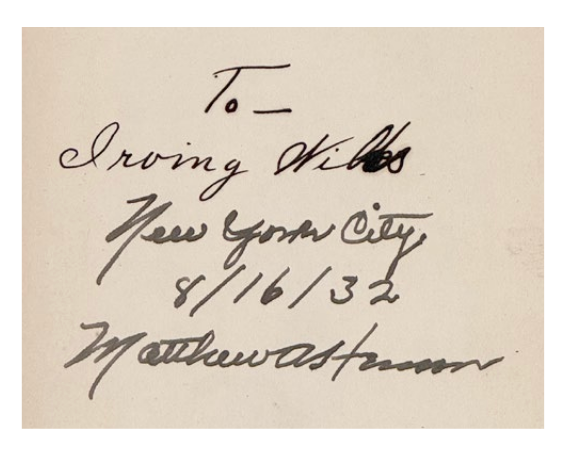 To —
Irving
New York City,
8/16/32
Matthew A Henson